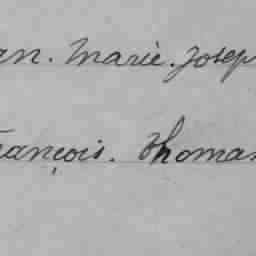 an. Marie. Josep
rançois. Thomas